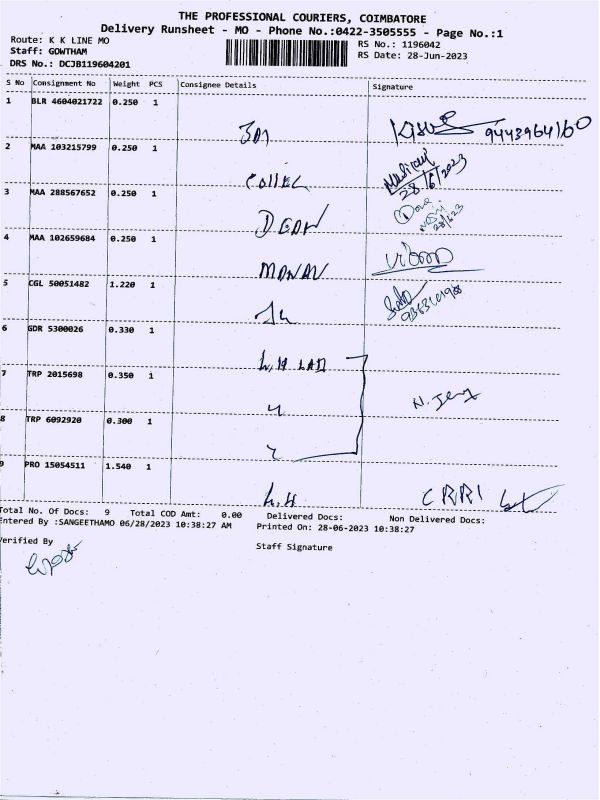 THE PROFESSIONAL COURIERS, COIMBATORE
Delivery Runsheet - MO - Phone No.:0422-3505555 - Page No.:1
Route: K K LINE MO
RS No.: 1196042
Staff: GOWTHAM
RS Date: 28-Jun-2023
DRS No.: DCJB119604201
S No Consignment No Weight PCS Consignee Details Signature
1 BLR 4604021722 0.250 1
9443964160
2 MAA 103215799 0.250 1
COLLEC
28/6/2023
3 MAA 288567652 0.250 1
DEAN
28/6/23
4 MAA 102659684 0.250 1
5 CGL 50051482 1.220 1
6 GDR 5300026 0.330 1
7 TRP 2015698 0.350 1
N. Jeny
8 TRP 6092920 0.300 1
9 PRO 15054511 1.540 1
CRRI
Total No. Of Docs: 9 Total COD Amt: 0.00 Delivered Docs: Non Delivered Docs:
Entered By :SANGEETHAMO 06/28/2023 10:38:27 AM Printed On: 28-06-2023 10:38:27
Verified By
Staff Signature